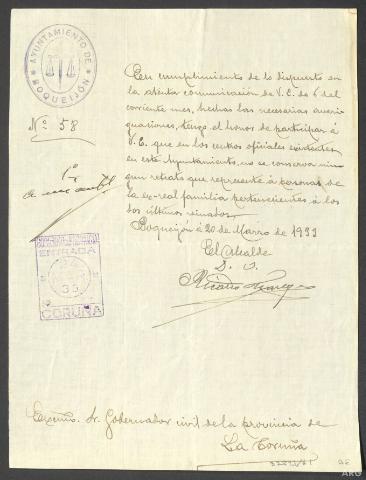 AYUNTAMIENTO DE
BOQUEIJÓN
Nº 58
En cumplimiento de lo dispuesto en
la atenta comunicación de V.E. de 6 del
corriente mes, hechas las necesarias averi
guaciones, tengo el honor de participar á
V.E. que en los centros oficiales existentes
en este Ayuntamiento, no se conserva nin
gun retrato que represente á personas de
la ex-real familia pertenecientes á los
dos últimos reinados.
Boqueijón á 20 de Marzo de 1933
El Alcalde
ENTRADA
33
CORUÑA
Excmo. Sr. Gobernador civil de la provincia de
La Coruña
ARG